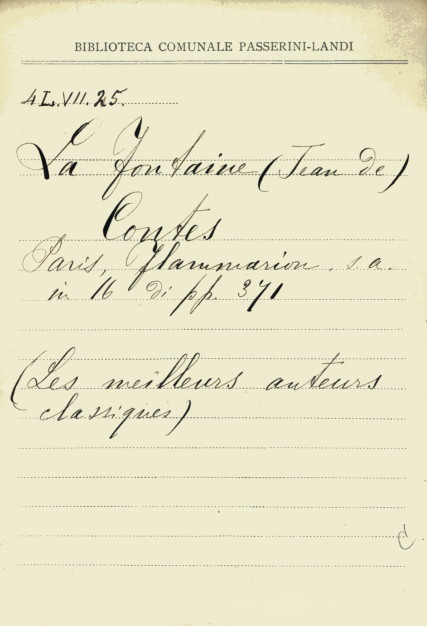 BIBLIOTECA COMUNALE PASSERINI-LANDI
4L.VII.25.
La Fontaine (Jean de)
Contes
Paris, Flammarion. s.a.
in 16 di pp. 371
(Les meilleurs auteurs
classiques)
C